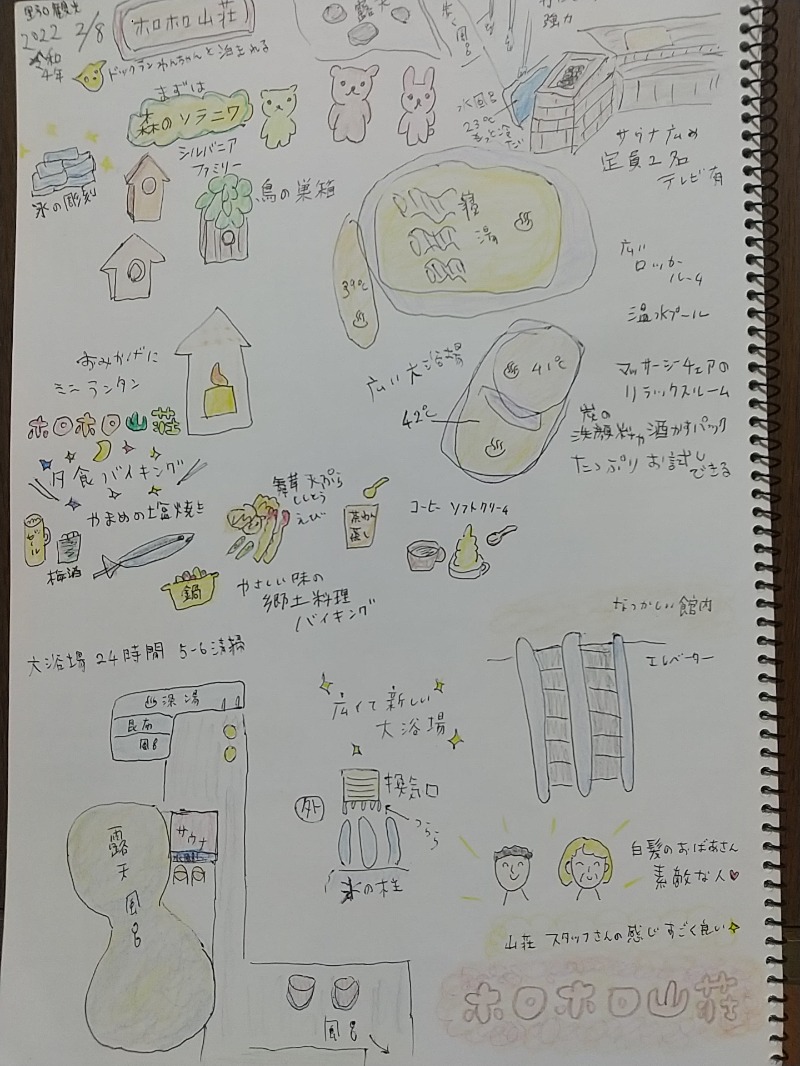 2022 2/8
令和
4年
ホロホロ山荘
ドッグランわんちゃんと泊まれる
まずは
森のソラニワ
シルバニア
ファミリー
氷の彫刻
鳥の巣箱
露天
強力
水風呂
23℃
サウナ広め
定員2名
テレビ有
寝
湯
39℃
広い
ロッカー
ルーム
温水プール
おみかげに
ミニランタン
広い大浴場
41℃
42℃
マッサージチェアの
リラックスルーム
炭の
洗顔料や酒かすパック
たっぷりお試し
できる
ホロホロ山荘
夕食バイキング
やまめの塩焼き
ビール
梅酒
舞茸天ぷら
ししとう
えび
茶わん
蒸し
コーヒー ソフトクリーム
鍋
やさしい味の
郷土料理
バイキング
なつかしい館内
エレベーター
大浴場24時間 5-6清掃
深湯
昆布
風呂
広くて新しい
大浴場
換気口
外
つらら
氷の柱
サウナ
水風呂
露天風呂
白髪のおばあさん
素敵な人
山荘 スタッフさんの感じすごく良い
風呂
ホロホロ山荘